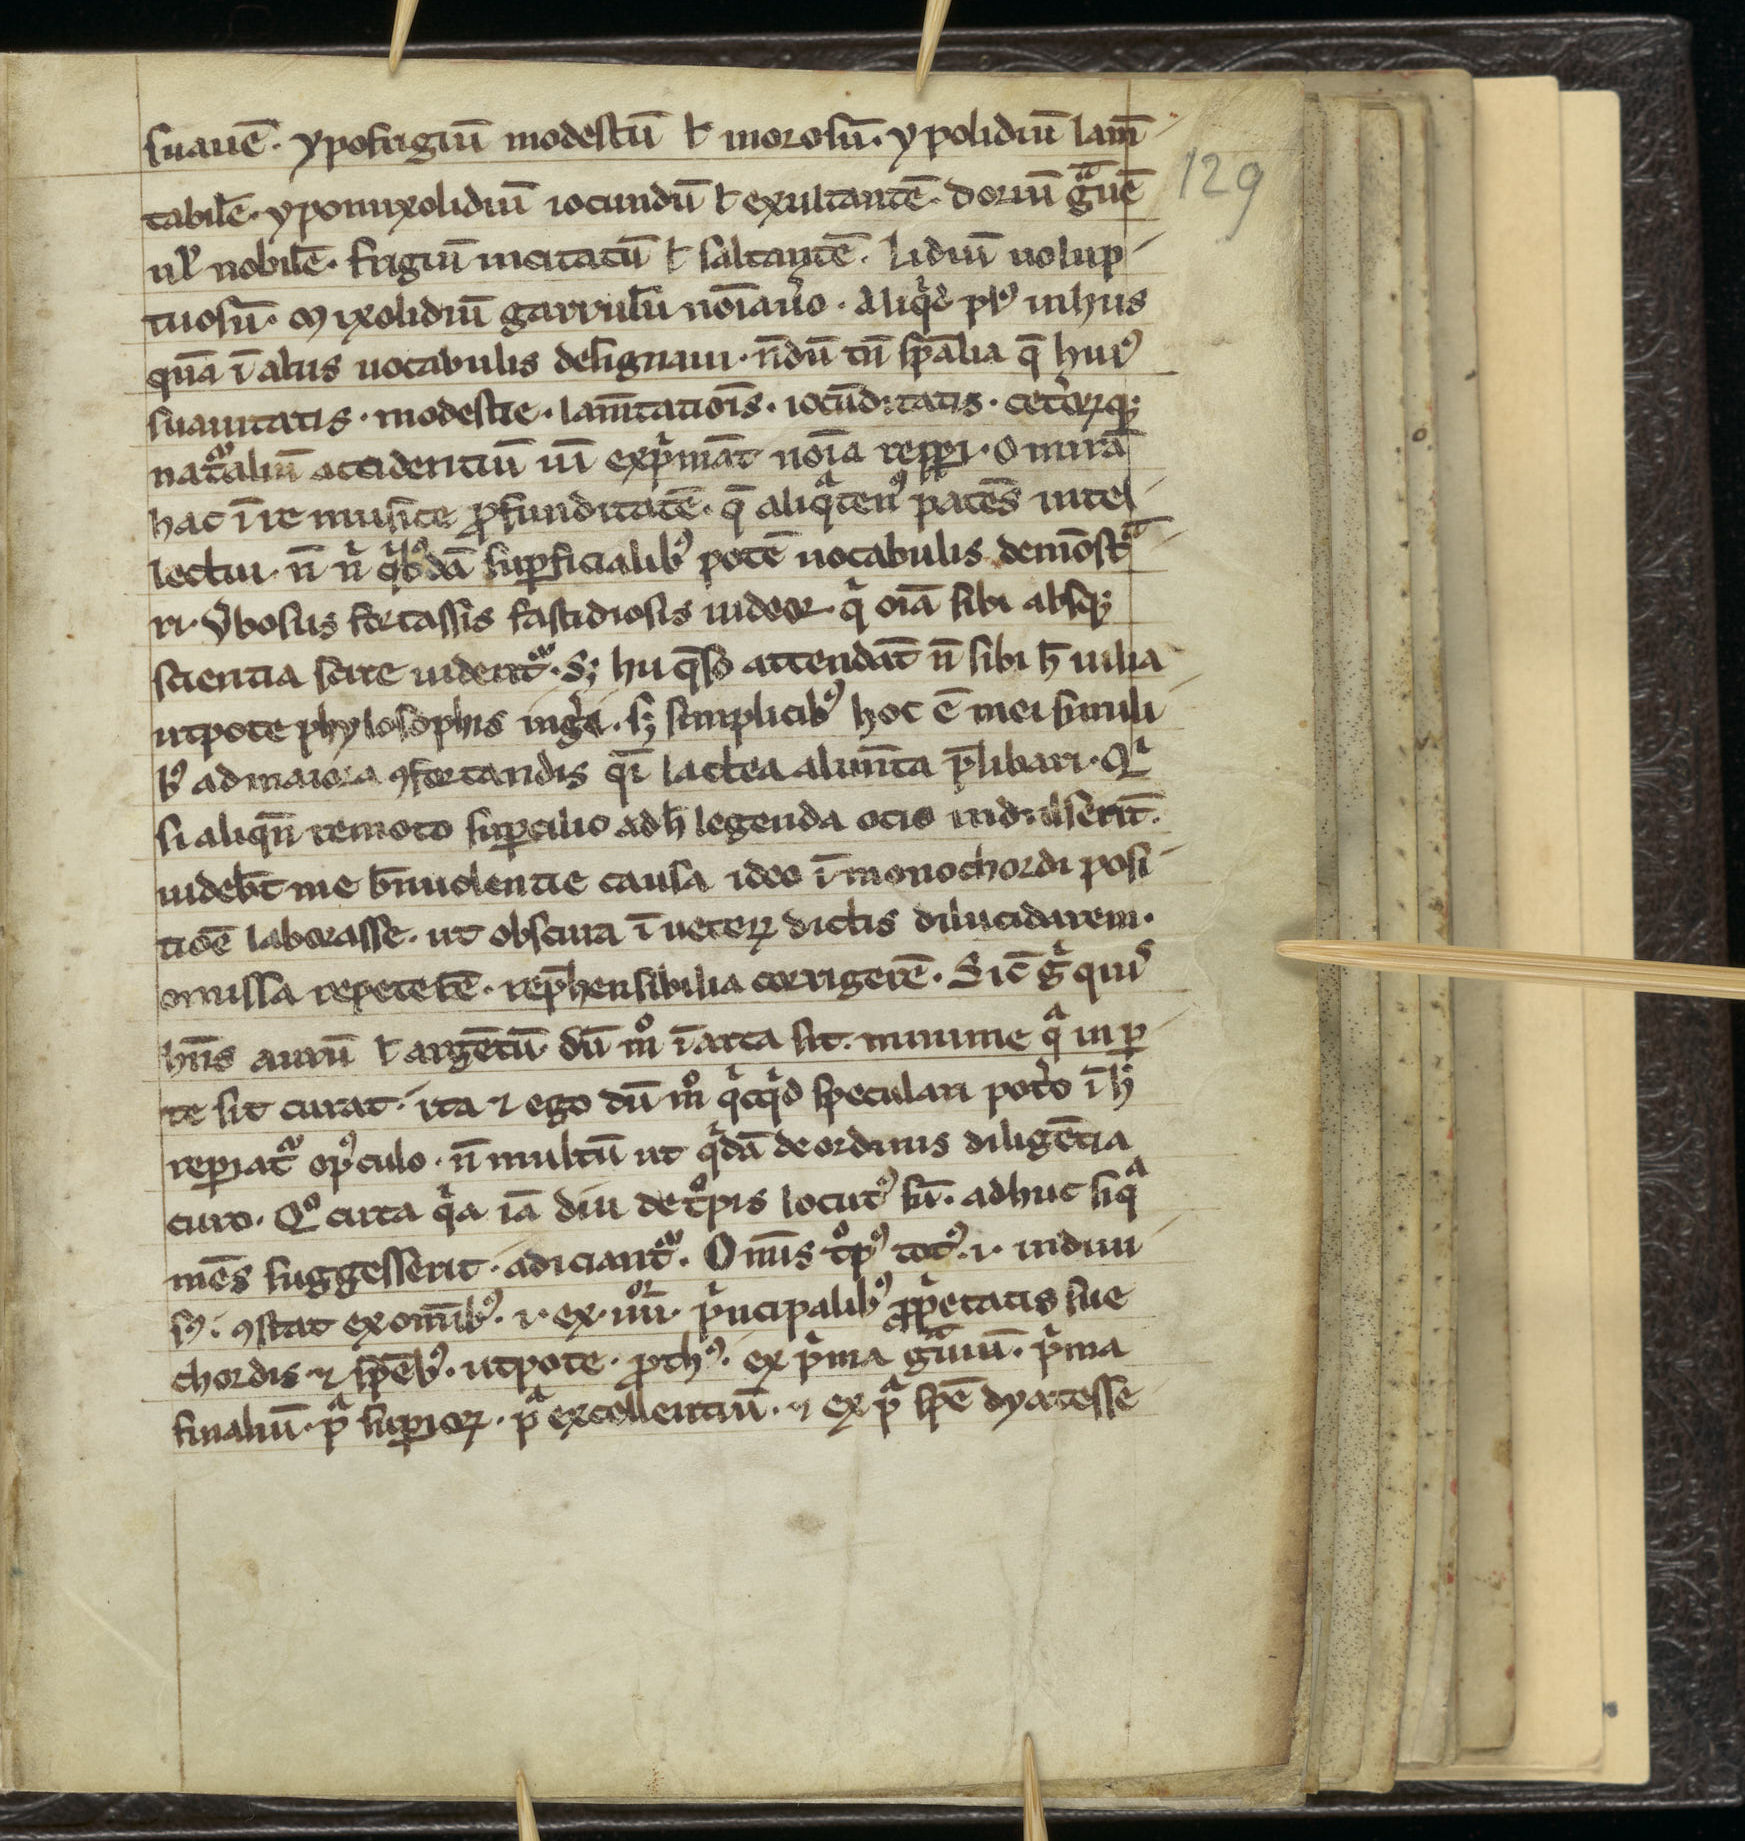 suauē. ypofrigiū modestū ł morosū. ypolidiū lam̄
tabilē. ypomixolidiū iocundū ł exultantē. doriū gͣuē
ul̓ nobilē. frigiū incitatū ł saltantē. Lidiū uolup
tuosū. Mixolidiū garrulū noīauͥo. Aliqͥd plꝰ in hiis
quā ī aliis uocabulis designaui. n̄dū tn̄ sp̄alia q̄ huiꝰ
suauitatis. modestie. lam̄tatiōis. iocūditatis. ceterͦꝝqꝫ
natͣaliū accidentiū uī expͥmāt noīa repperi. O mirā
hac ī re musice ꝓfunditatē. q̄ aliqͣtenꝰ patēs intel
lectui. n̄ nͥ qͥbꝰdā suꝑficialibꝰ potē uocabulis demōstͣ
ri. Ṽbosus fortassis fastidiosis uideor. qͥ oīa sibi absqꝫ
scientia scire uidentͬ. Sꝫ hii q̄so attendāt n̄ sibi h̄ uilia
utpote phylosophis ingͥi. sꝫ simplicibꝰ hoc ē mei simili
bꝰ ad maiora ꝯfortandis qͣi lactea alim̄ta p̄libari. Qͥ
si aliqn̄ remoto suꝑcilio ad h̄ legenda ocio indulserit̄.
uideb̄t me b̄niuolentie causa ideo ī monochordi posi
tiōe laborasse. ut obscura ī ueteꝝ dictis dilucidarem.
omissa repeterē. rep̄hensibilia corrigerē. Sic̄ gͥ quiꝰ
hn̄s aurū ł argētū dū mͦ ī arca sit. minime qͣ in ꝑ
te sit curat. ita ⁊ ego dū mͦ qͥcqͥd speculari potͥo ī h̄
reꝑiatͬ opꝰculo. n̄ multū ut qͥdā de ordinis diligētia
curo. Qͦ circa qͥa iā diu de tͦpis locutꝰ sū. adhuc siqͣ
mēs suggesserit. adiciantͬ. Omīs tͦpꝰ totꝰ. i. indiui
sꝰ. ꝯstat ex omībꝰ. i. ex. iiiiͦͬ. pͥncipalibꝰ ꝓpͥetatis sue
chordis. ⁊ spēbꝰ. utpote. ꝓthꝰ. ex pͥma gͣuiū. pͥma
finaliū. pͣ suꝑioꝝ. pͣ excellentiū. ⁊ ex pͣ spē dyatesse
129